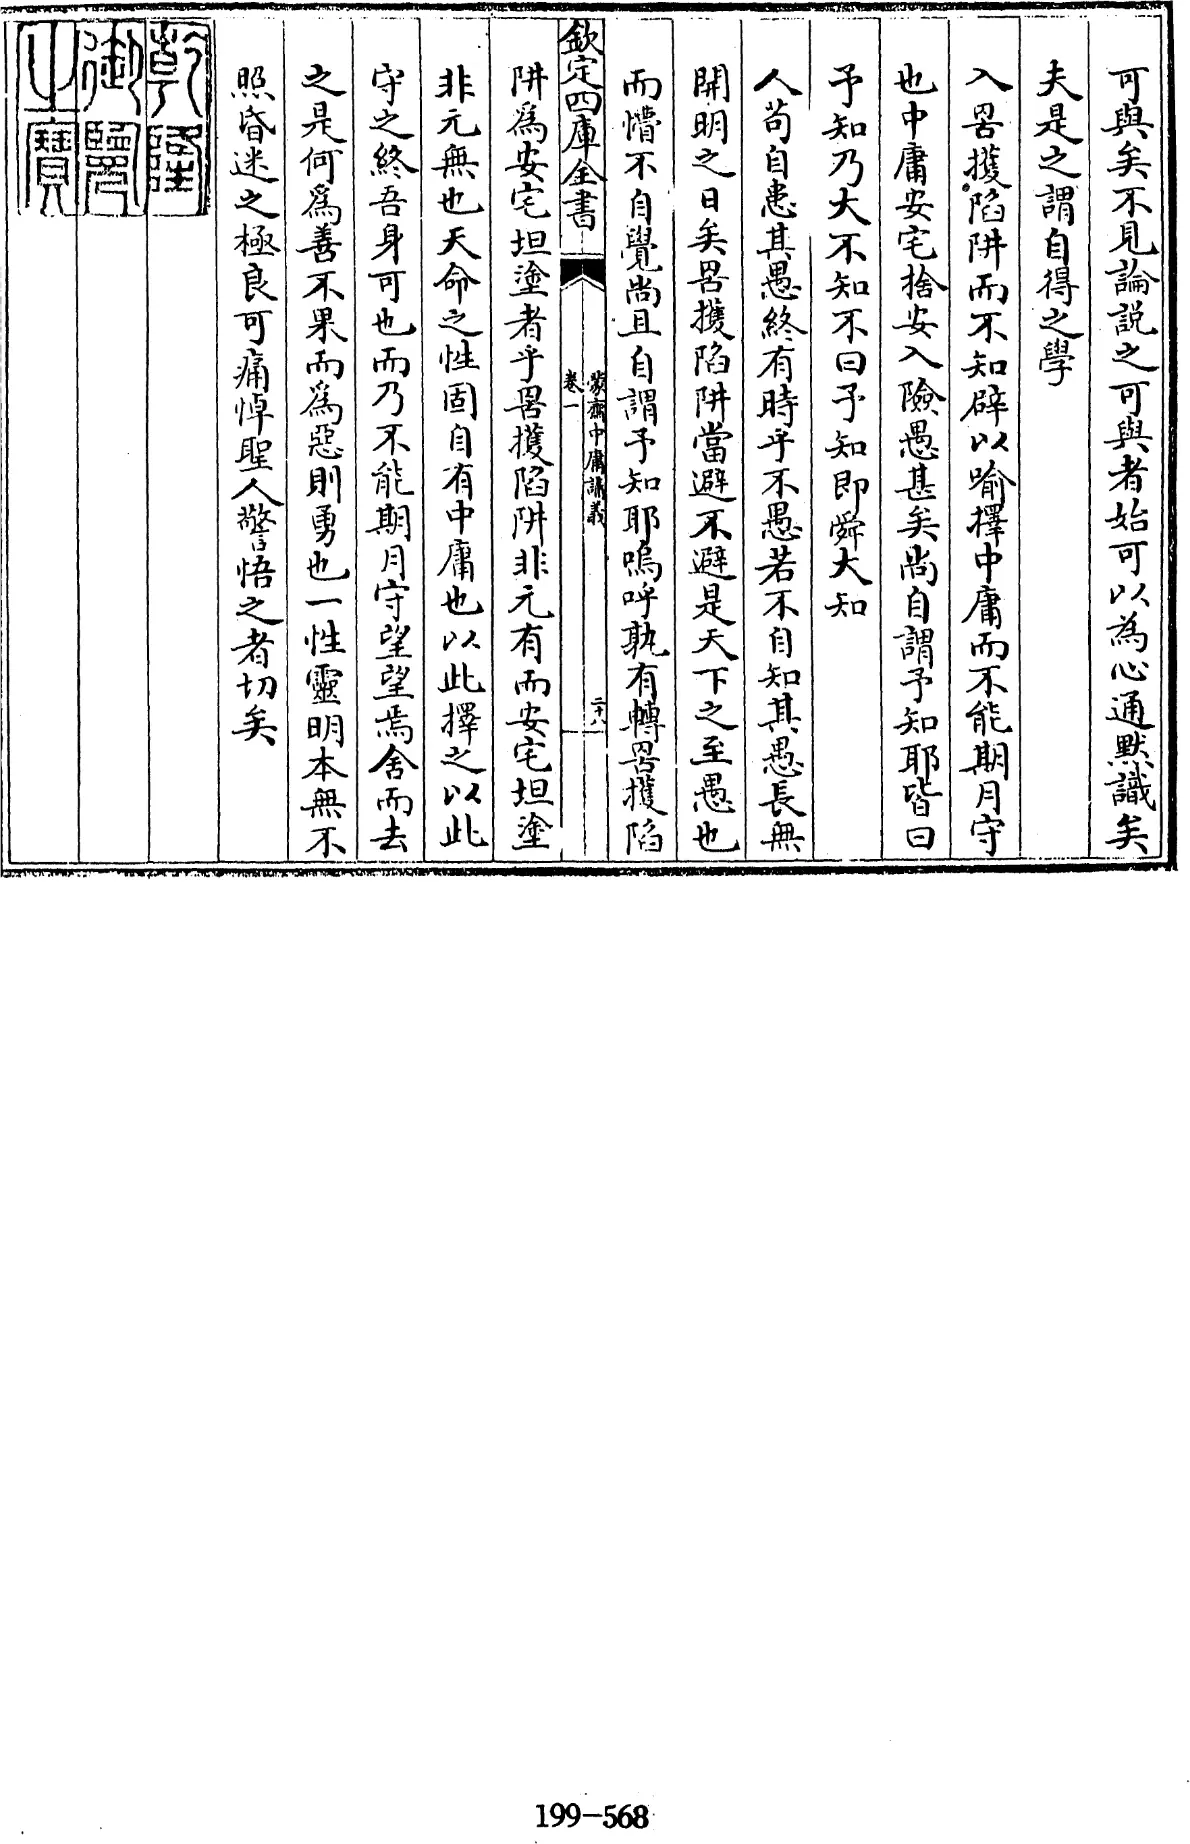 可與矣不見論説之可與者始可以為心通默識矣
夫是之謂自得之學
入罟擭陷阱而不知辟以喻擇中庸而不能期月守
也中庸安宅捨安入險愚甚矣尚自謂予知耶皆曰
予知乃大不知不曰予知即舜大知
人苟自患其愚終有時乎不愚若不自知其愚長無
開明之日矣罟擭陷阱當避不避是天下之至愚也
而懵不自覺尚且自謂予知耶嗚呼孰有轉罟擭陷
欽定四庫全書
蒙齋中庸講義
卷一
二十八
阱爲安宅坦塗者乎罟擭陷阱非元有而安宅坦塗
非元無也天命之性固自有中庸也以此擇之以此
守之終吾身可也而乃不能期月守望望焉舍而去
之是何爲善不果而爲惡則勇也一性靈明本無不
照昏迷之極良可痛悼聖人警悟之者切矣
乾隆
御覽
之寶
199-568